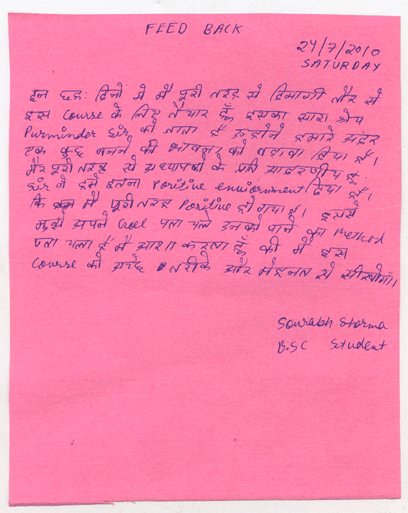 FEED BACK
24/7/2010
SATURDAY
इन छह: दिनो मे मैं पूरी तरह से दिमागी तौर से
इस Course के लिए तैयार हूँ इसका सारा श्रेय
Purminder Sir को जाता है उन्होने हमारे अन्दर
एक कुछ बनने की भावना को बढ़ावा दिया है।
मैं पूरी तरह से अध्यापको के प्रति आदरणीय हूँ
Sir ने हमे इतना Positive enviornment दिया है।
कि मैं पूरी तरह Positive हो गया हूँ। इससे
मुझे अपने Goal पता चले उनको पाने का method
पता चला है मैं आशा करता हूँ की मैं इस
Course को अच्छे तरीके और मेहनत से सीखोगा।
Sourabh Sharma
B.SC Student